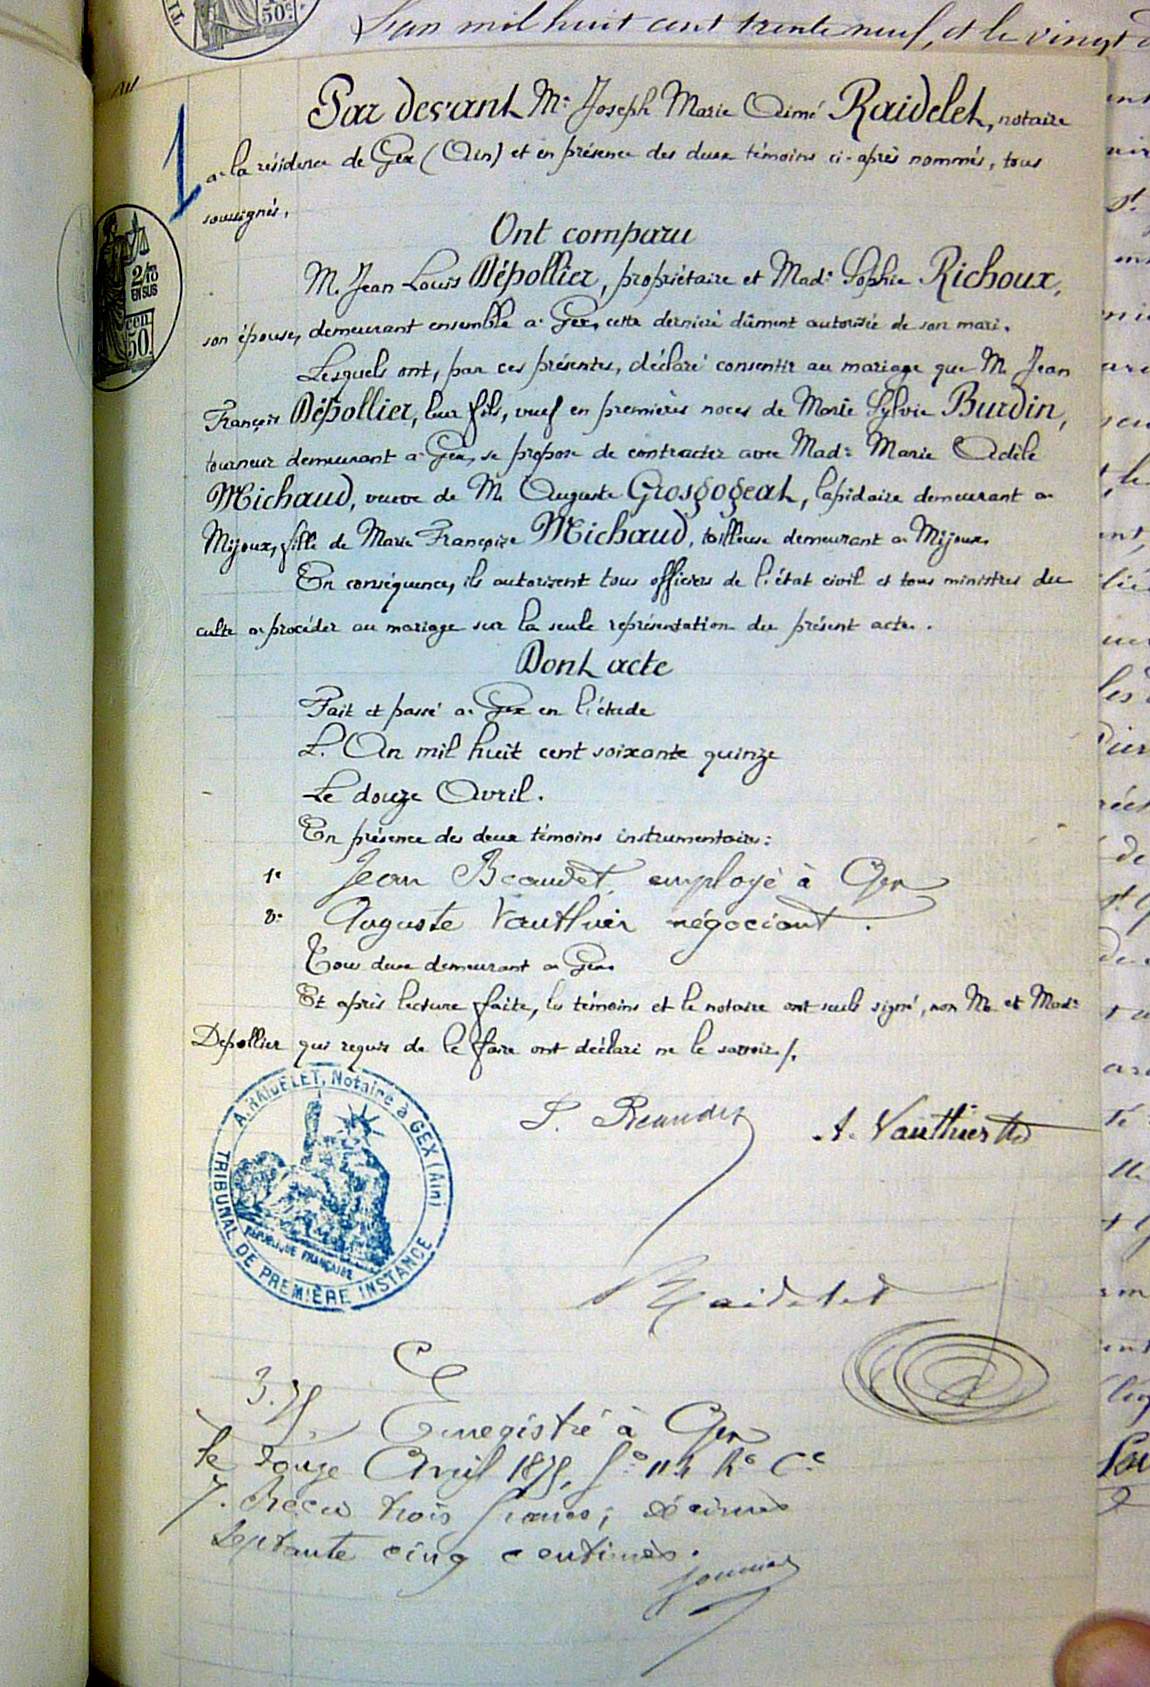 L'an mil huit cent trente neuf, et le vingt
50c
1
Par devant Me Joseph Marie Aimé Raidelet, notaire
à la résidence de Gex (Ain) et en présence des deux témoins ci-après nommés, tous
soussignés,
Ont comparu
2/10
EN SUS
50
M. Jean Louis Dépollier, propriétaire et Made Sophie Richoux,
son épouse, demeurant ensemble à Gex, cette dernière dûment autorisée de son mari.
Lesquels ont, par ces présentes, déclaré consentir au mariage que M. Jean
François Dépollier, leur fils, veuf en premières noces de Marie Sylvie Burdin,
tourneur demeurant à Gex, se propose de contracter avec Made Marie Adèle
Michaud, veuve de M. Auguste Grosgogeat, lapidaire demeurant à
Mijoux, fille de Marie Françoise Michaud, tailleuse demeurant à Mijoux.
En conséquence, ils autorisent tous officiers de l'état civil et tous ministres du
culte à procéder au mariage sur la seule représentation du présent acte.
Dont acte
Fait et passé à Gex en l'étude
L'An mil huit cent soixante quinze
Le douze Avril.
En présence des deux témoins instrumentaires:
1e Jean Beaudet, employé à Gex
2e Auguste Vauthier négociant.
Tous deux demeurant à Gex.
Et après lecture faite, les témoins et le notaire ont seuls signé, non M. et Made
Depollier qui requis de le faire ont déclaré ne le savoir /.
A. RAIDELET, Notaire à GEX (Ain)
TRIBUNAL DE PREMIÈRE INSTANCE
RÉPUBLIQUE FRANÇAISE
J. Beaudet
A. Vauthier
Raidelet
3.75
Enregistré à Gex
le douze Avril 1875, fo 114 Ro Ce
7. Reçu trois francs; décimes
Septante cinq centimes.